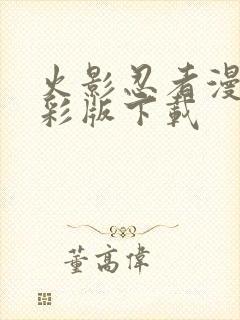 火影忍者漫
彩版下載
董高偉